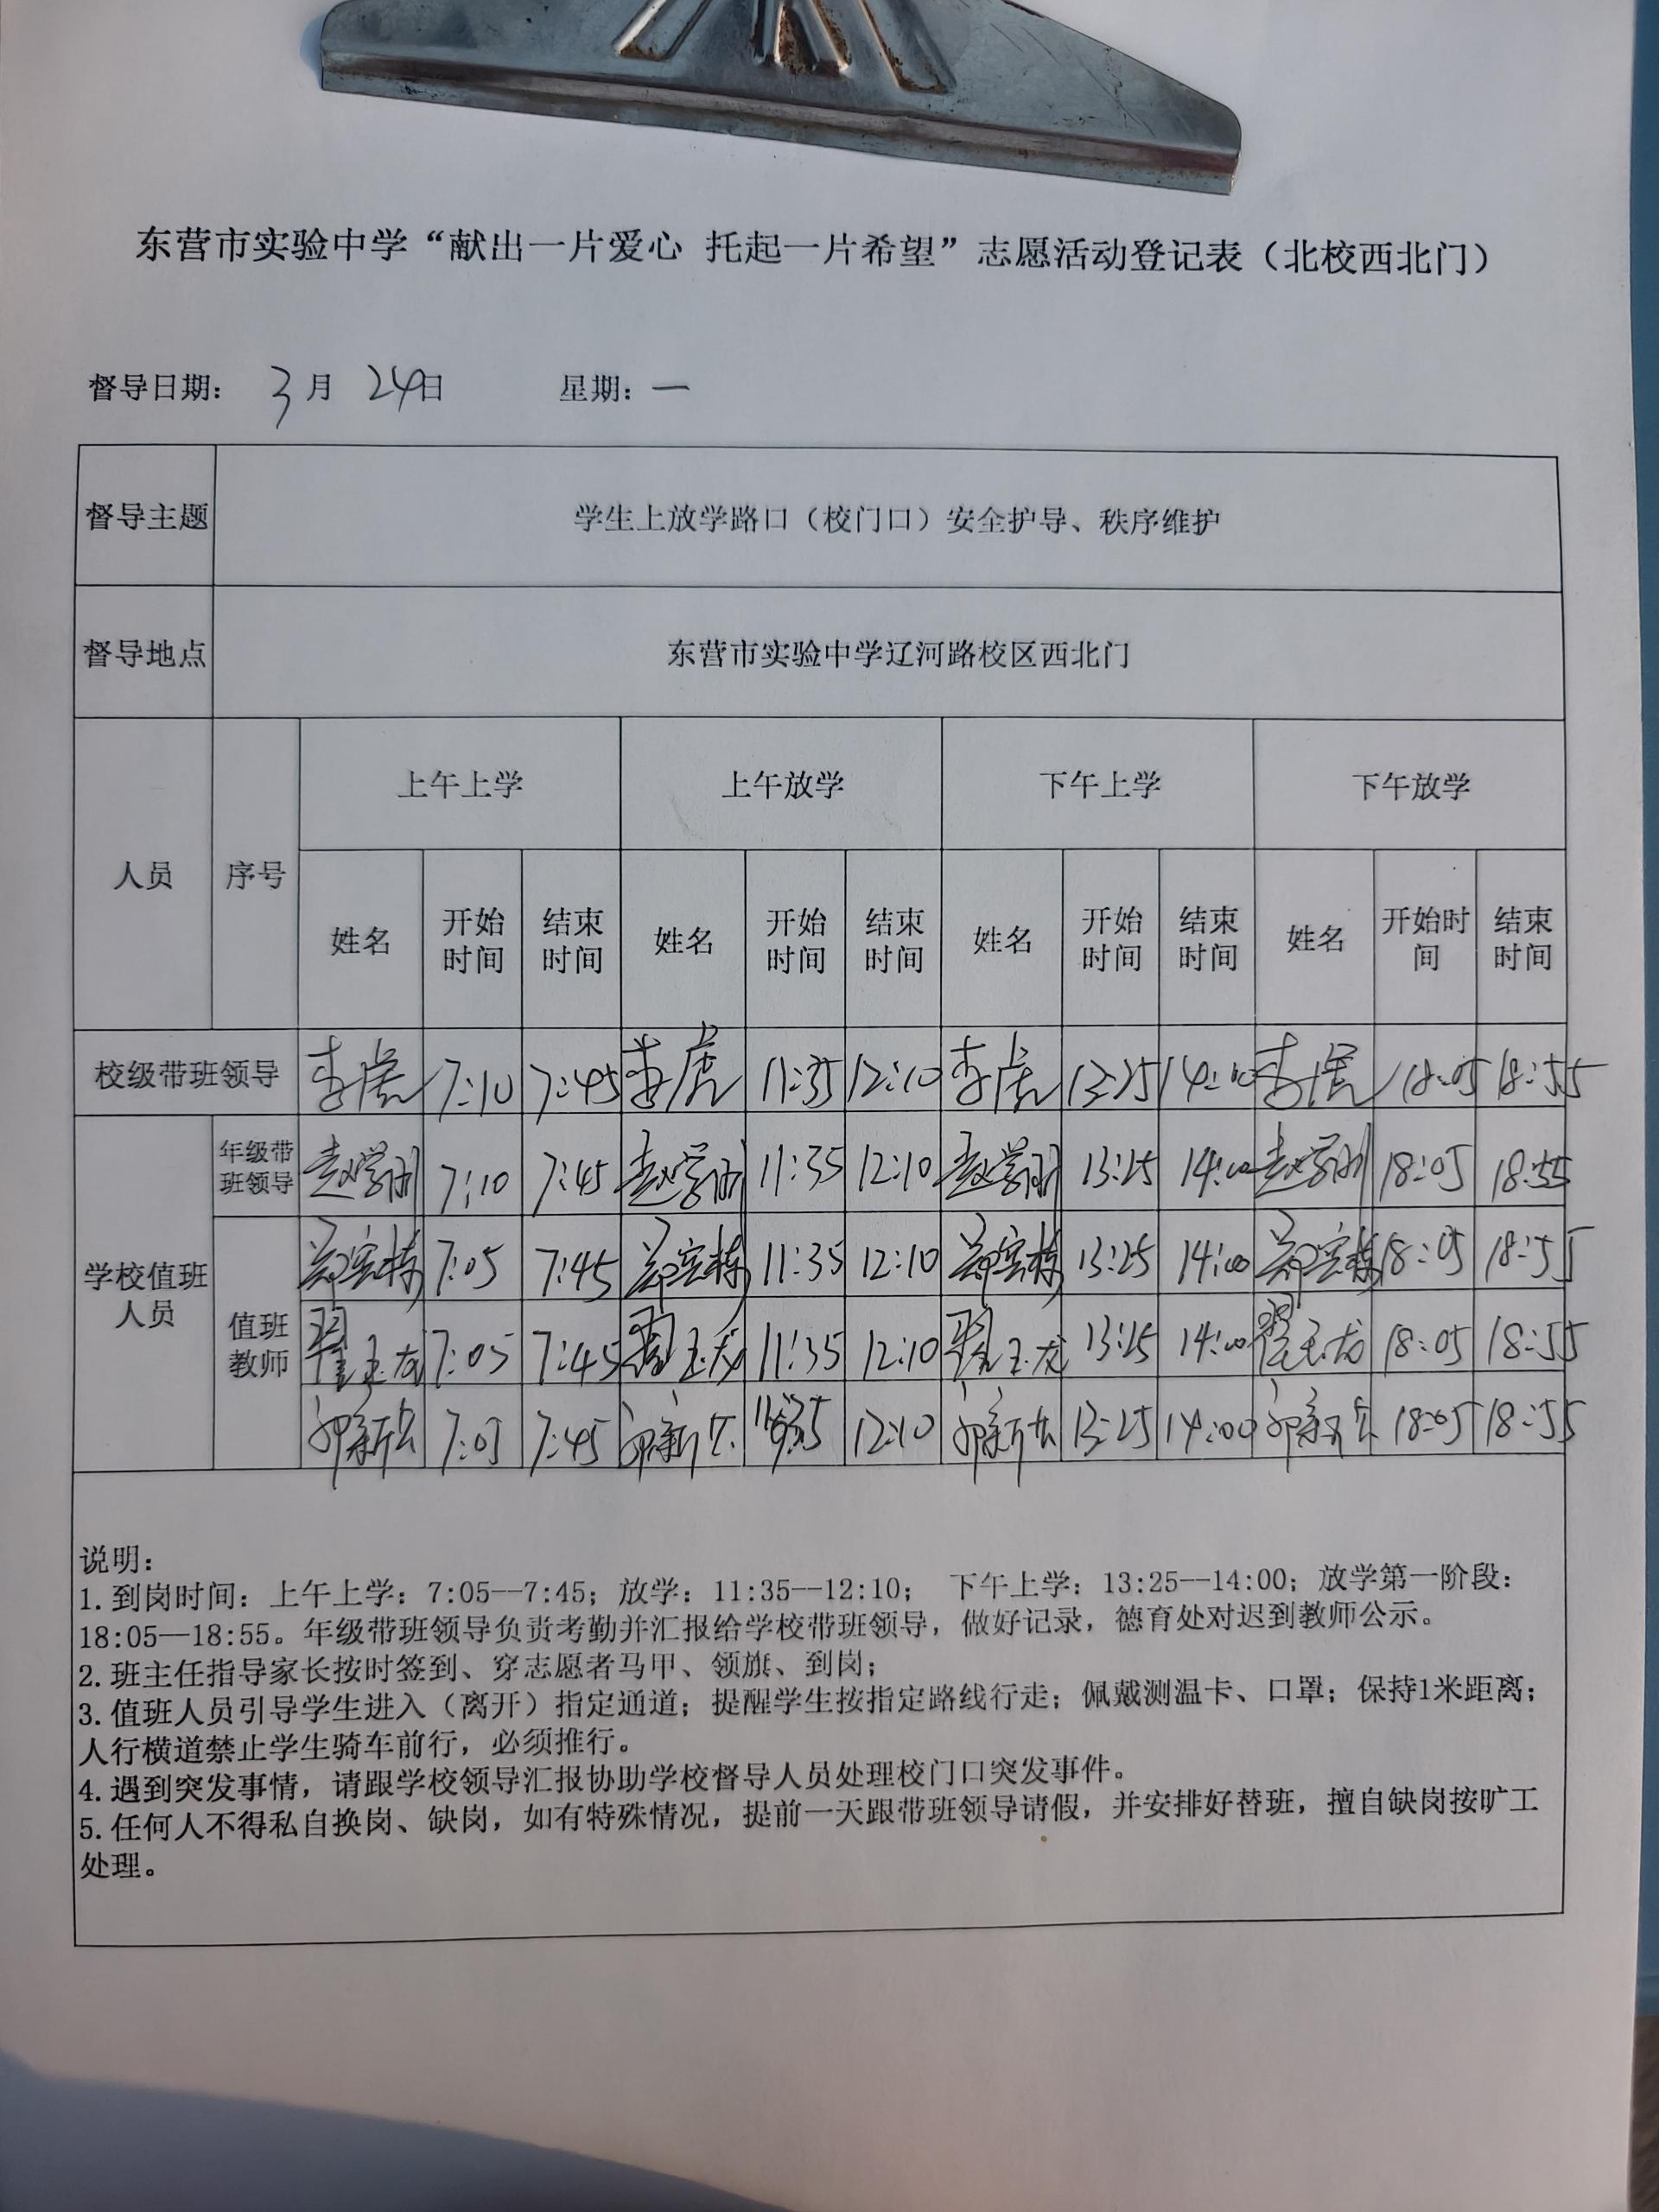 东营市实验中学“献出一片爱心 托起一片希望”志愿活动登记表（北校西北门）
督导日期： 3月 24日 星期：一
督导主题 学生上放学路口（校门口）安全护导、秩序维护
督导地点 东营市实验中学辽河路校区西北门
人员 序号 上午上学 上午放学 下午上学 下午放学
姓名 开始时间 结束时间 姓名 开始时间 结束时间 姓名 开始时间 结束时间 姓名 开始时间 结束时间
校级带班领导 李 7:10 7:45 李 11:35 12:10 李 13:25 14:00 李 18:05 18:55
学校值班人员 年级带班领导 赵学 7:10 7:45 赵学 11:35 12:10 赵学 13:25 14:00 赵学 18:05 18:55
值班教师 郑宝栋 7:05 7:45 郑宝栋 11:35 12:10 郑宝栋 13:25 14:00 郑宝栋 18:05 18:55
翟玉龙 7:05 7:45 翟玉龙 11:35 12:10 翟玉龙 13:25 14:00 翟玉龙 18:05 18:55
新 7:05 7:45 新 11:35 12:10 新 13:25 14:00 新 18:05 18:55
说明：
1.到岗时间：上午上学：7:05—7:45；放学：11:35—12:10； 下午上学：13:25—14:00；放学第一阶段：
18:05—18:55。年级带班领导负责考勤并汇报给学校带班领导，做好记录，德育处对迟到教师公示。
2.班主任指导家长按时签到、穿志愿者马甲、领旗、到岗；
3.值班人员引导学生进入（离开）指定通道；提醒学生按指定路线行走；佩戴测温卡、口罩；保持1米距离；
人行横道禁止学生骑车前行，必须推行。
4.遇到突发事情，请跟学校领导汇报协助学校督导人员处理校门口突发事件。
5.任何人不得私自换岗、缺岗，如有特殊情况，提前一天跟带班领导请假，并安排好替班，擅自缺岗按旷工
处理。